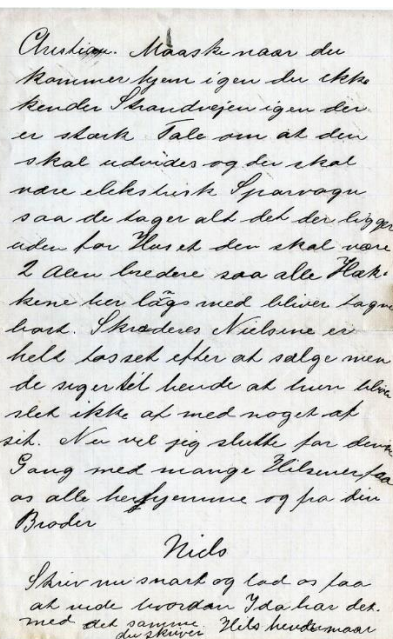 Christian. Maaske naar du
kommer hjem igen du ikke
kender Strandvejen igen der
er stærk Tale om at den
skal udvides og der skal
være elekstrisk Sporvogn
saa de tager alt det der ligger
uden for Huset den skal være
2 Alen bredere saa alle Hæk-
kene her lågs med bliver tagne
bort. Skræderes Nielsine er
helt tosset efter at sælge men
de siger til hende at hun bliver
slet ikke af med noget af
sit. Nu vil jeg slutte for denne
Gang med mange Hilsener fra
os alle herhjemme og fra din
Broder
Niels
Skriv nu snart og lad os faa
at vide hvordan Ida har det.
med det samme Hils hende naar
du skriver